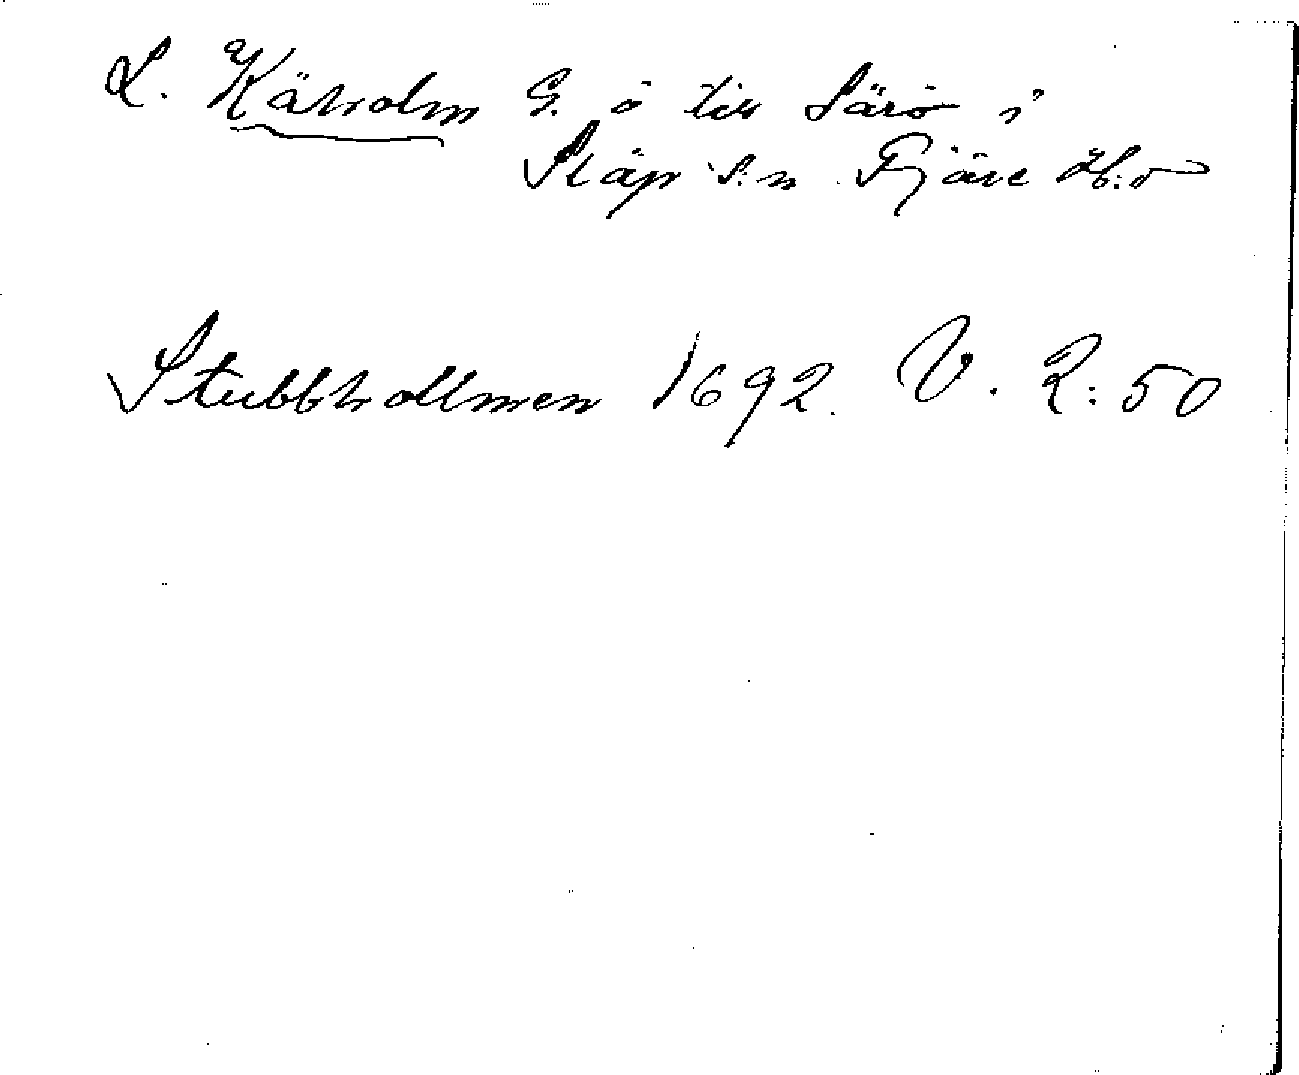 L. Käholm G. ö till Särö i
Släp s:n Fjäre H:d
Stubbhollmen 1692. V. R: 50